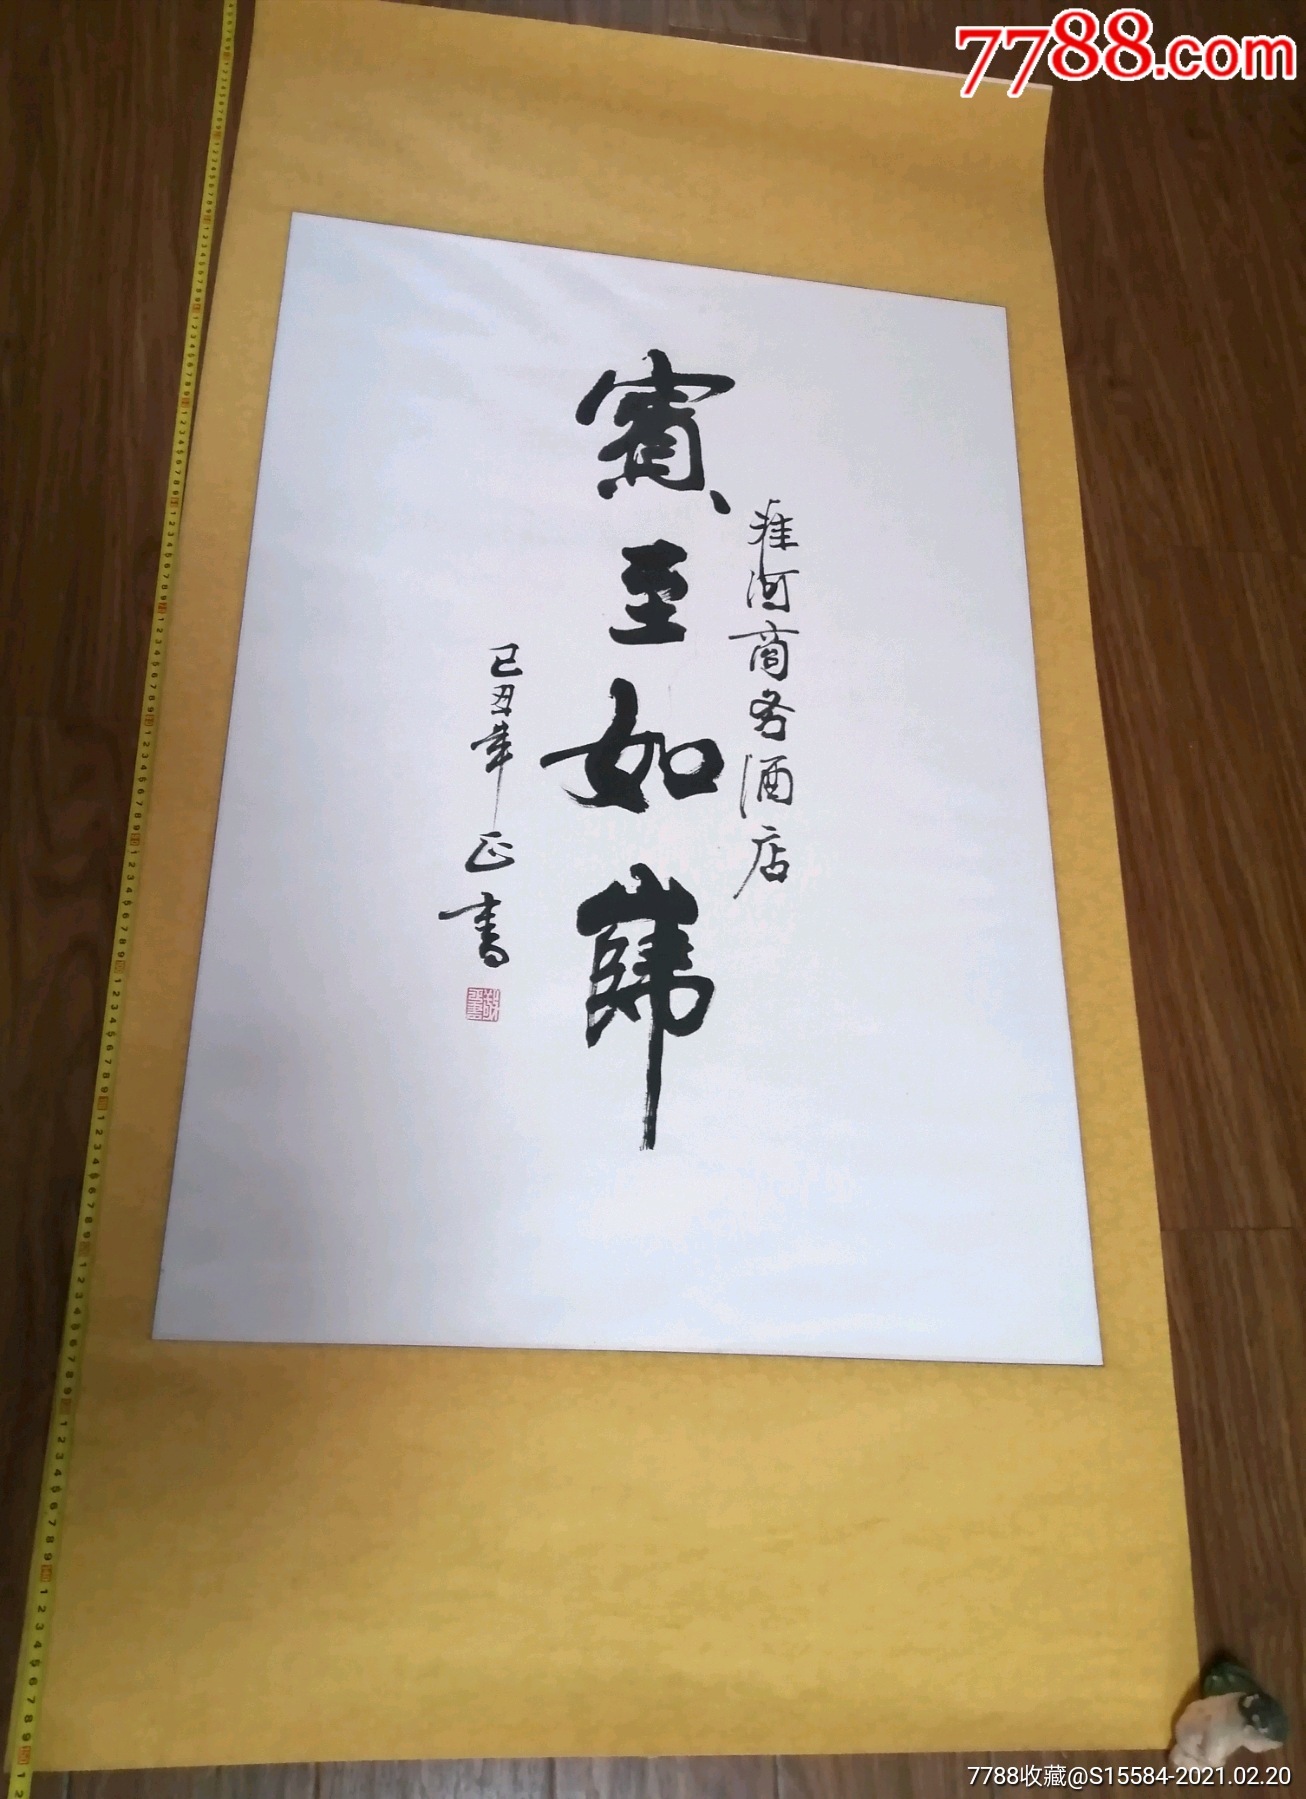 7788.com
淮河商务酒店
賓至如歸
己丑年 正書
7788收藏@S15584-2021.02.20